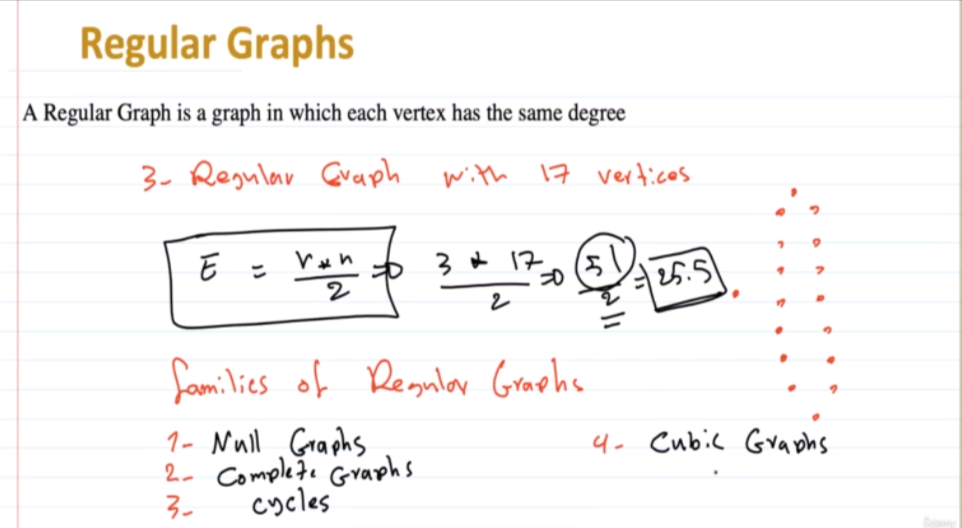 Regular Graphs
A Regular Graph is a graph in which each vertex has the same degree
3- Regular Graph with 17 vertices
E = r*n/2 ⇒ 3 * 17/2 ⇒ 51/2 = 25.5
families of Regular Graphs
1- Null Graphs
2- Complete Graphs
3- cycles
4- Cubic Graphs
Udemy